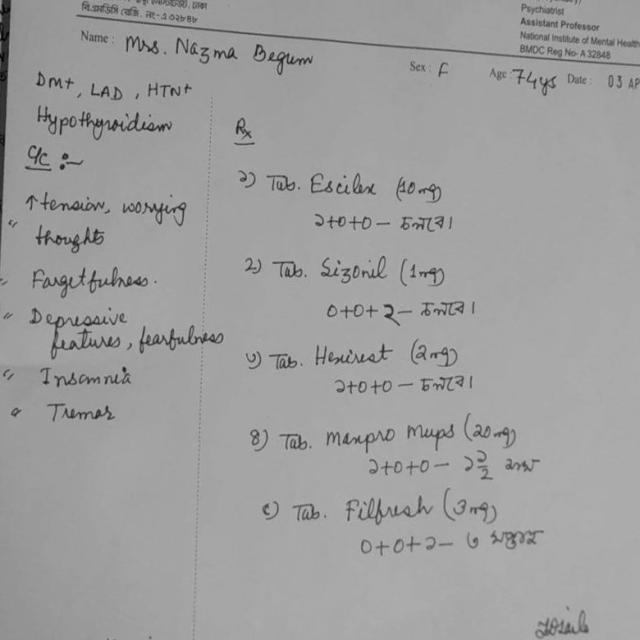 বি.এমডিসি রেজি. নং-এ ৩২৮৪৮
Psychiatrist
Assistant Professor
National Institute of Mental Health
BMDC Reg No- A 32848
Name : Mrs. Nazma Begum
Sex : F
Age 74ys
Date : 03 AP
DM+, LAD, HTN+
Hypothyroidism
C/C :-
↑ tension, worrying
thoughts
Fargetfulness.
Depressive
features, fearfulness
Insomnia
Tremor
Rx
১) Tab. Escilex (10mg)
১+০+০ – চলবে।
২) Tab. Sizonil (1mg)
০+০+১ – চলবে।
৩) Tab. Hexirest (2mg)
১+০+০ – চলবে।
৪) Tab. Maxpro Mups (20mg)
১+০+০ – ১ ১/২ মাস
৫) Tab. Filfresh (3mg)
০+০+১ – ৩ সপ্তাহ